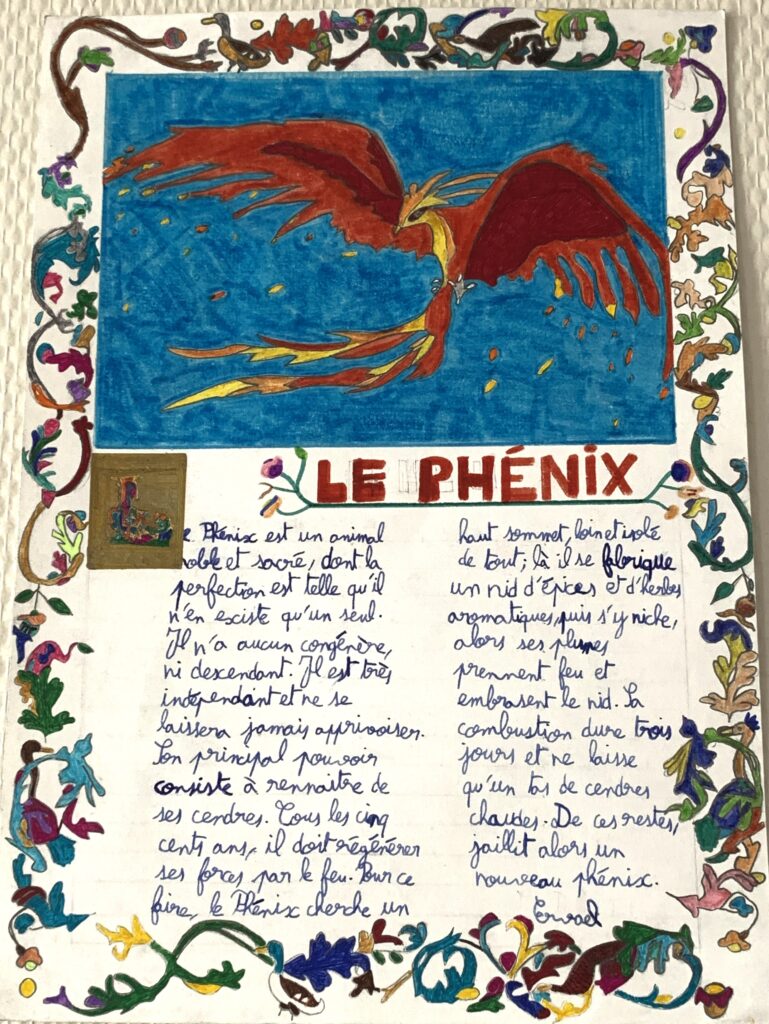 LE PHÉNIX
Le Phénix est un animal
noble et sacré, dont la
perfection est telle qu'il
n'en existe qu'un seul.
Il n'a aucun congénère,
ni descendant. Il est très
indépendant et ne se
laissera jamais apprivoiser.
Son principal pouvoir
consiste à rennaitre de
ses cendres. Tous les cinq
cents ans, il doit régénérer
ses forces par le feu. Pour ce
faire, le Phénix cherche un
haut sommet, loin et isolé
de tout; là il se fabrique
un nid d'épices et d'herbes
aromatiques, puis s'y niche,
alors ses plumes
prennent feu et
embrasent le nid. Sa
combustion dure trois
jours et ne laisse
qu'un tas de cendres
chaudes. De ces restes,
jaillit alors un
nouveau phénix.